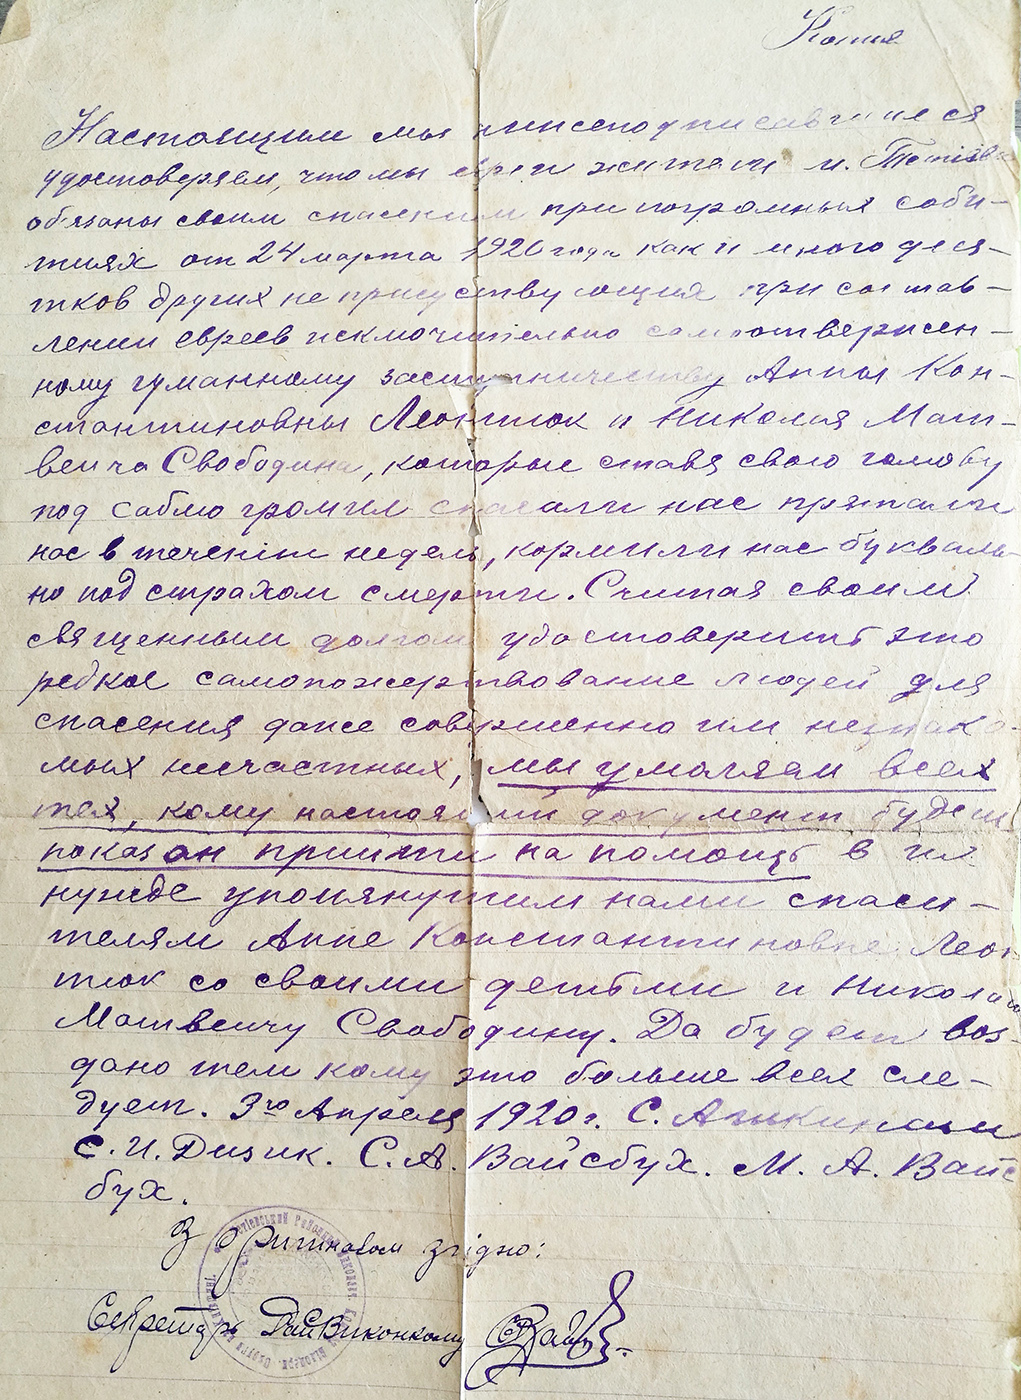 Копия
Настоящим мы нижеподписавшиеся
удостоверяем, что мы евреи жители м. Тетиева
обязаны своим спасением при погромных собы-
тиях от 24 марта 1920 года как и много деся-
тков других не присутствующих при состав-
лении евреев исключительно самоотвержен-
ному гуманному заступничеству Анны Кон-
стантиновны Леонтюк и Николая Мат-
веича Свободина, которые ставя свою голову
под саблю громил спасали нас прятали
нас в течении недель, кормили нас букваль-
но под страхом смерти. Считая своим
священным долгом удостоверить это
редкое самопожертвование людей для
спасения даже совершенно им незнако-
мых несчастных, мы умоляем всех
тех, кому настоящий документ будет
показан прийти на помощь в их
нужде упомянутым нами спаси-
телям Анне Константиновне Леон
тюк со своими детьми и Николаю
Матвеичу Свободину. Да будет воз-
дано тем кому это больше всех сле-
дует. 3го Апреля 1920 г. С.
С. И. Дизик. С. А. Вайсбух. М. А. Вайс
бух.
З оригіналом згідно:
Секретарь РайВиконкому